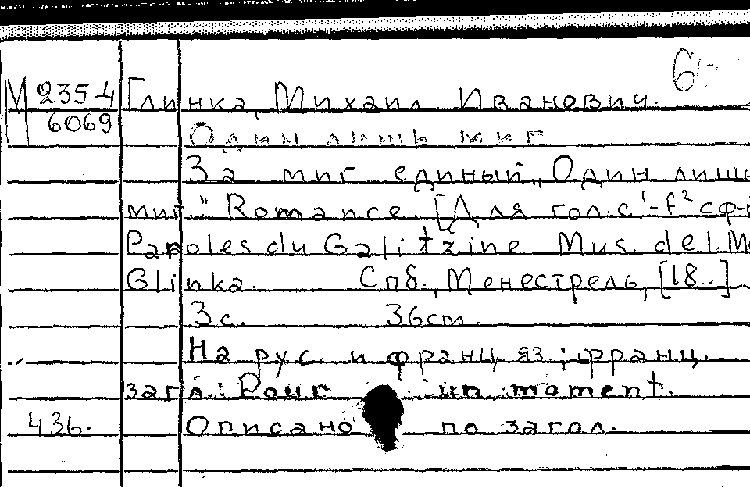 6
М 2354 Глинка, Михаил Иванович.
6069
Один лишь миг
За миг единый, Один лишь
миг" Romance [Для гол. c¹-f² с ф-
Paroles du Galitzine Mus. de M.
Glinka. Спб., Менестрель, [18..]
3 с. 36cm
На рус. и франц яз; франц.
загл: Pour un moment.
436. Описано по загол.